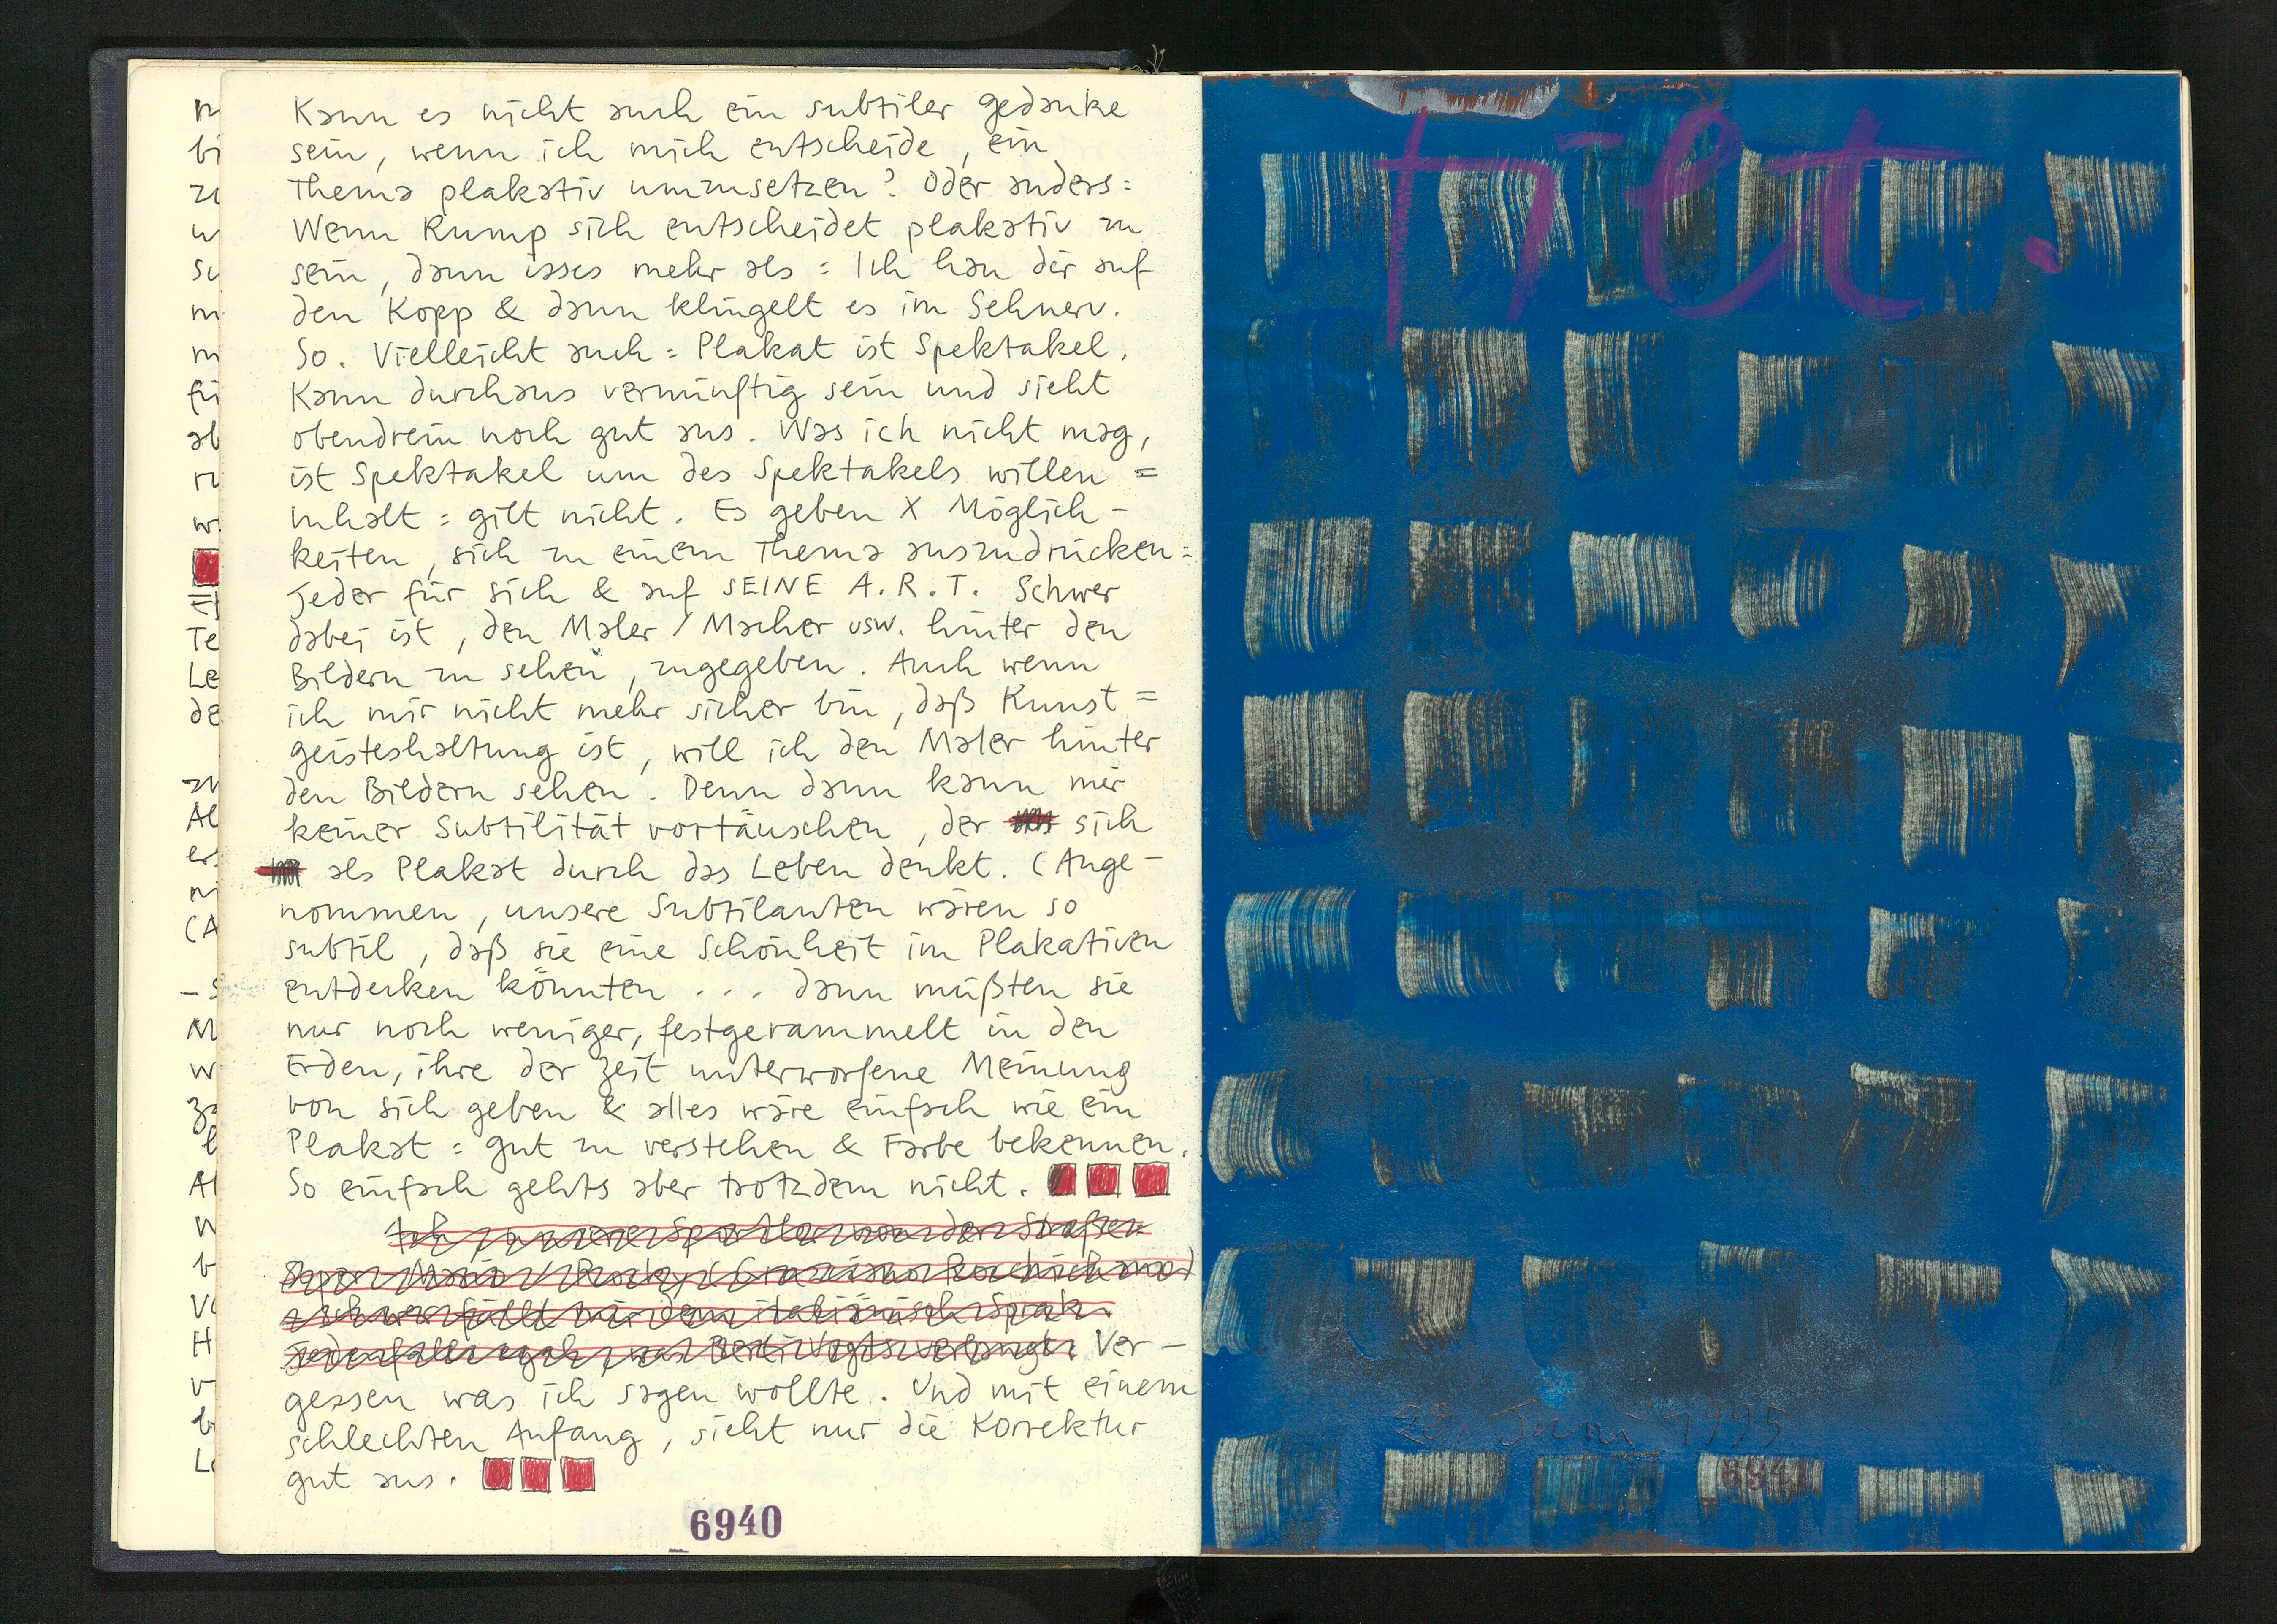 Kann es nicht auch ein subtiler gedanke
sein, wenn ich mich entscheide, ein
Thema plakativ umzusetzen? Oder anders:
Wenn Rump sich entscheidet plakativ zu
sein, dann isses mehr als = Ich hau dir auf
den Kopp & dann klingelt es im Sehnerv.
So. Vielleicht auch = Plakat ist Spektakel.
Kann durchaus vernünftig sein und sieht
obendrein noch gut aus. Was ich nicht mag,
ist Spektakel um des Spektakels willen =
Inhalt = gilt nicht. Es geben X Möglich-
keiten, sich zu einem Thema auszudrücken =
Jeder für sich & auf SEINE A.R.T. Schwer
dabei ist, den Maler / Macher usw. hinter den
Bildern zu sehen, zugegeben. Auch wenn
ich mir nicht mehr sicher bin, daß Kunst =
geisteshaltung ist, will ich den Maler hinter
den Bildern sehen. Denn dann kann mir
keiner Subtilität vortäuschen, der sich
als Plakat durch das Leben denkt. (Ange-
nommen, unsere Subtilanten wären so
subtil, daß sie eine Schönheit im Plakativen
entdecken könnten ... dann müßten sie
nur noch weniger, festgerammelt in den
Erden, ihre der Zeit unterworfene Meinung
von sich geben & alles wäre einfach wie ein
Plakat = gut zu verstehen & Farbe bekennen.
So einfach gehts aber trotzdem nicht.
Ver-
gessen was ich sagen wollte. Und mit einem
schlechten Anfang, sieht nur die Korrektur
gut aus.
6940
tilt.
29. Juni 1995
6941